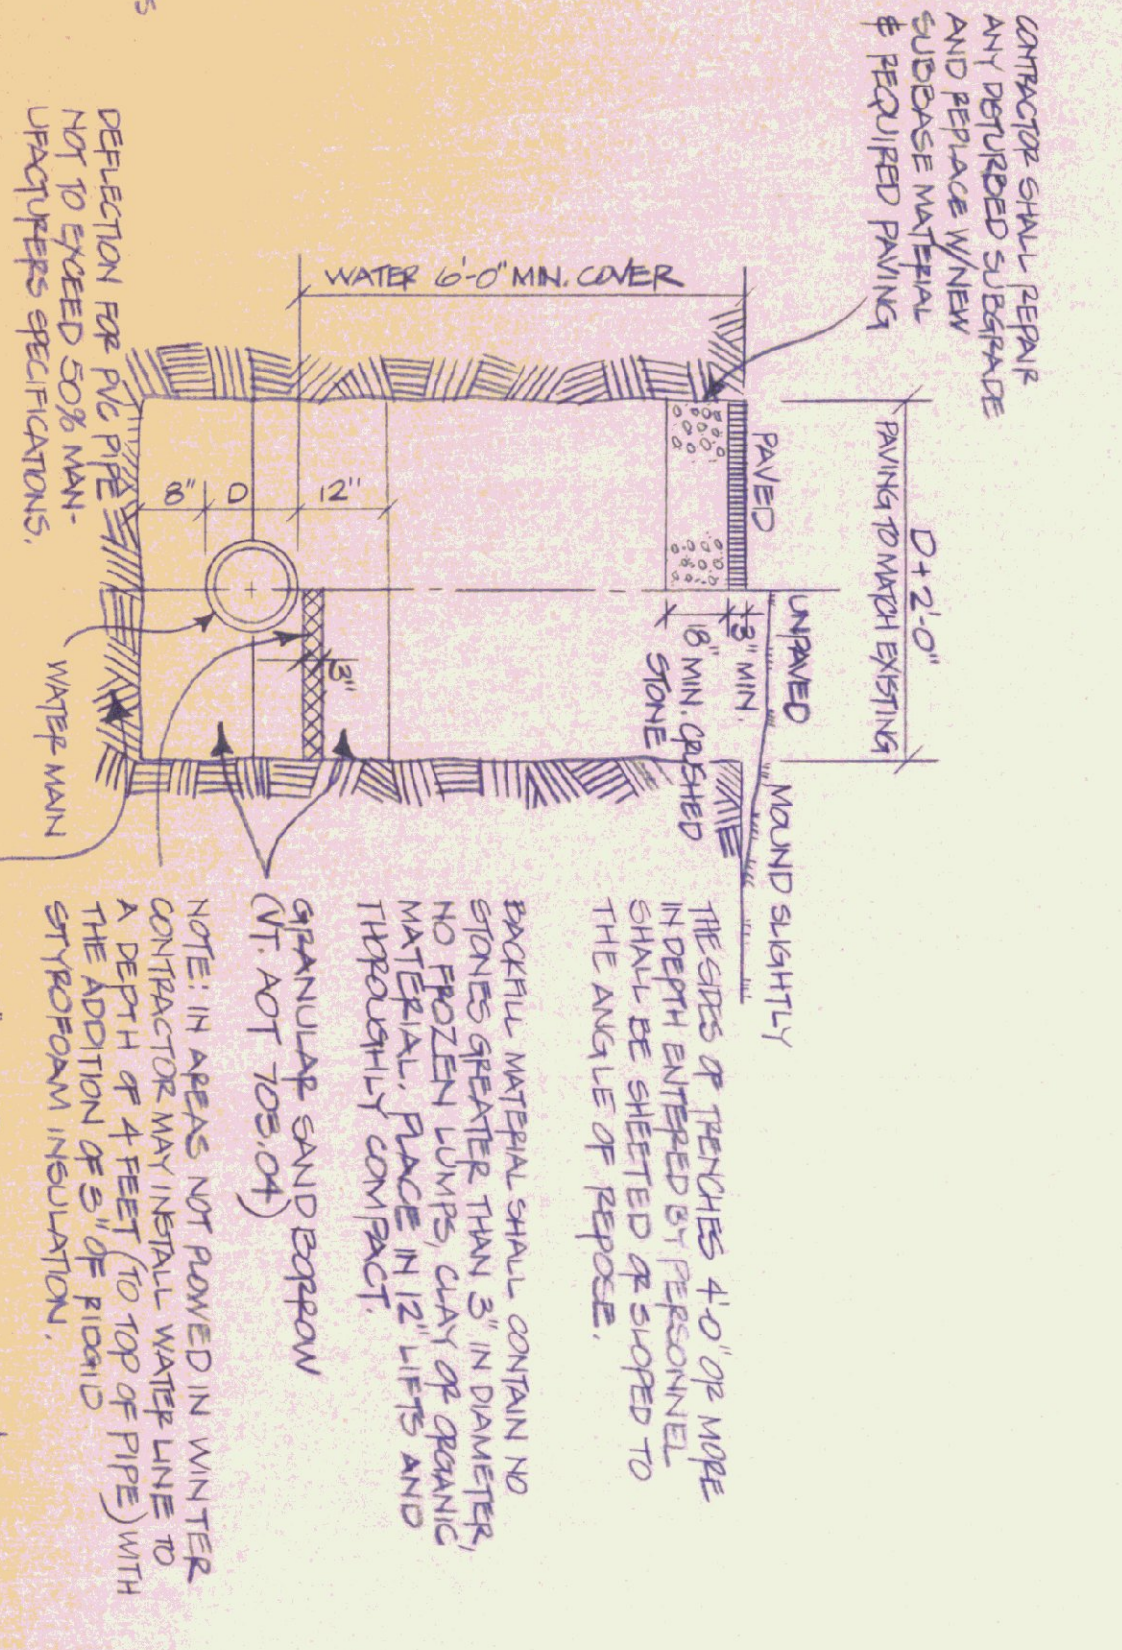 CONTRACTOR SHALL REPAIR
ANY DETURBED SUBGRADE
AND REPLACE W/NEW
SUBBASE MATERIAL
& REQUIRED PAVING
D + 2'-0"
PAVING TO MATCH EXISTING
PAVED
UNPAVED
MOUND SLIGHTLY
3" MIN.
18" MIN. CRUSHED
STONE
WATER 6'-0" MIN. COVER
12"
D
8"
3"
THE SIDES OF TRENCHES 4'-0" OR MORE
IN DEPTH ENTERED BY PERSONNEL
SHALL BE SHEETED OR SLOPED TO
THE ANGLE OF REPOSE.
BACKFILL MATERIAL SHALL CONTAIN NO
STONES GREATER THAN 3" IN DIAMETER,
NO FROZEN LUMPS, CLAY OR ORGANIC
MATERIAL. PLACE IN 12" LIFTS AND
THOROUGHLY COMPACT.
GRANULAR SAND BORROW
(VT. AOT 703.04)
NOTE: IN AREAS NOT PLOWED IN WINTER
CONTRACTOR MAY INSTALL WATER LINE TO
A DEPTH OF 4 FEET (TO TOP OF PIPE) WITH
THE ADDITION OF 3" OF RIDGID
STYROFOAM INSULATION.
WATER MAIN
DEFLECTION FOR PVC PIPE
NOT TO EXCEED 50% MAN-
UFACTURERS SPECIFICATIONS.